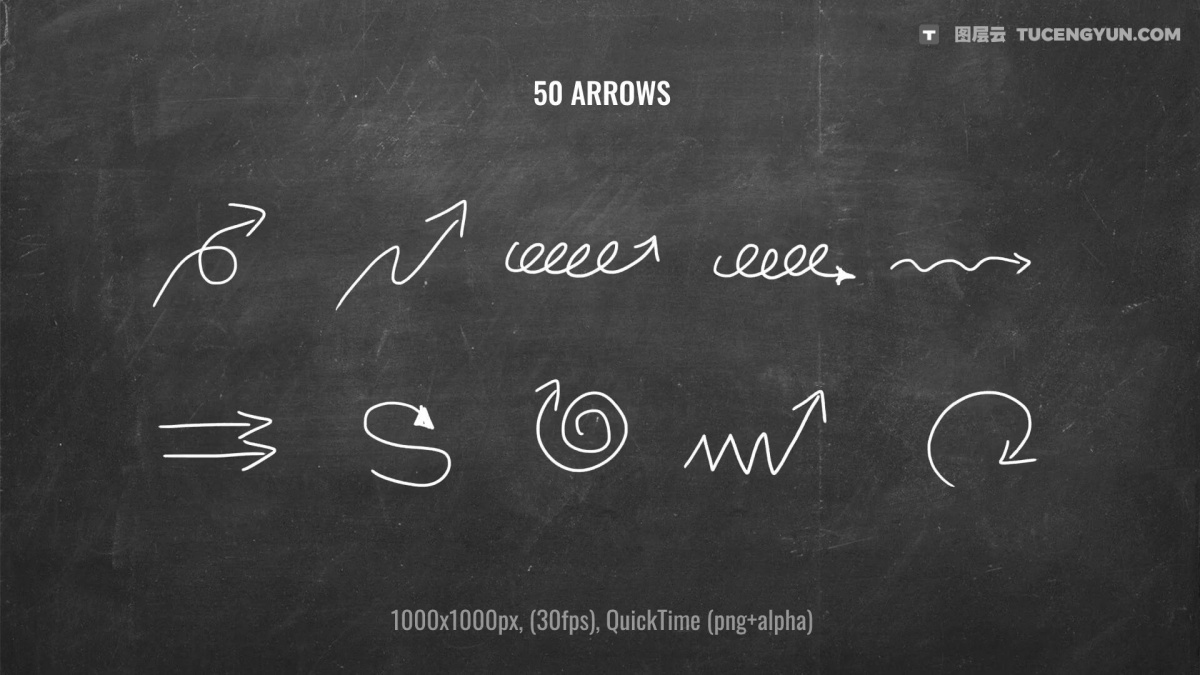 T 图层云 TUCENGYUN.COM
50 ARROWS
1000x1000px, (30fps), QuickTime (png+alpha)